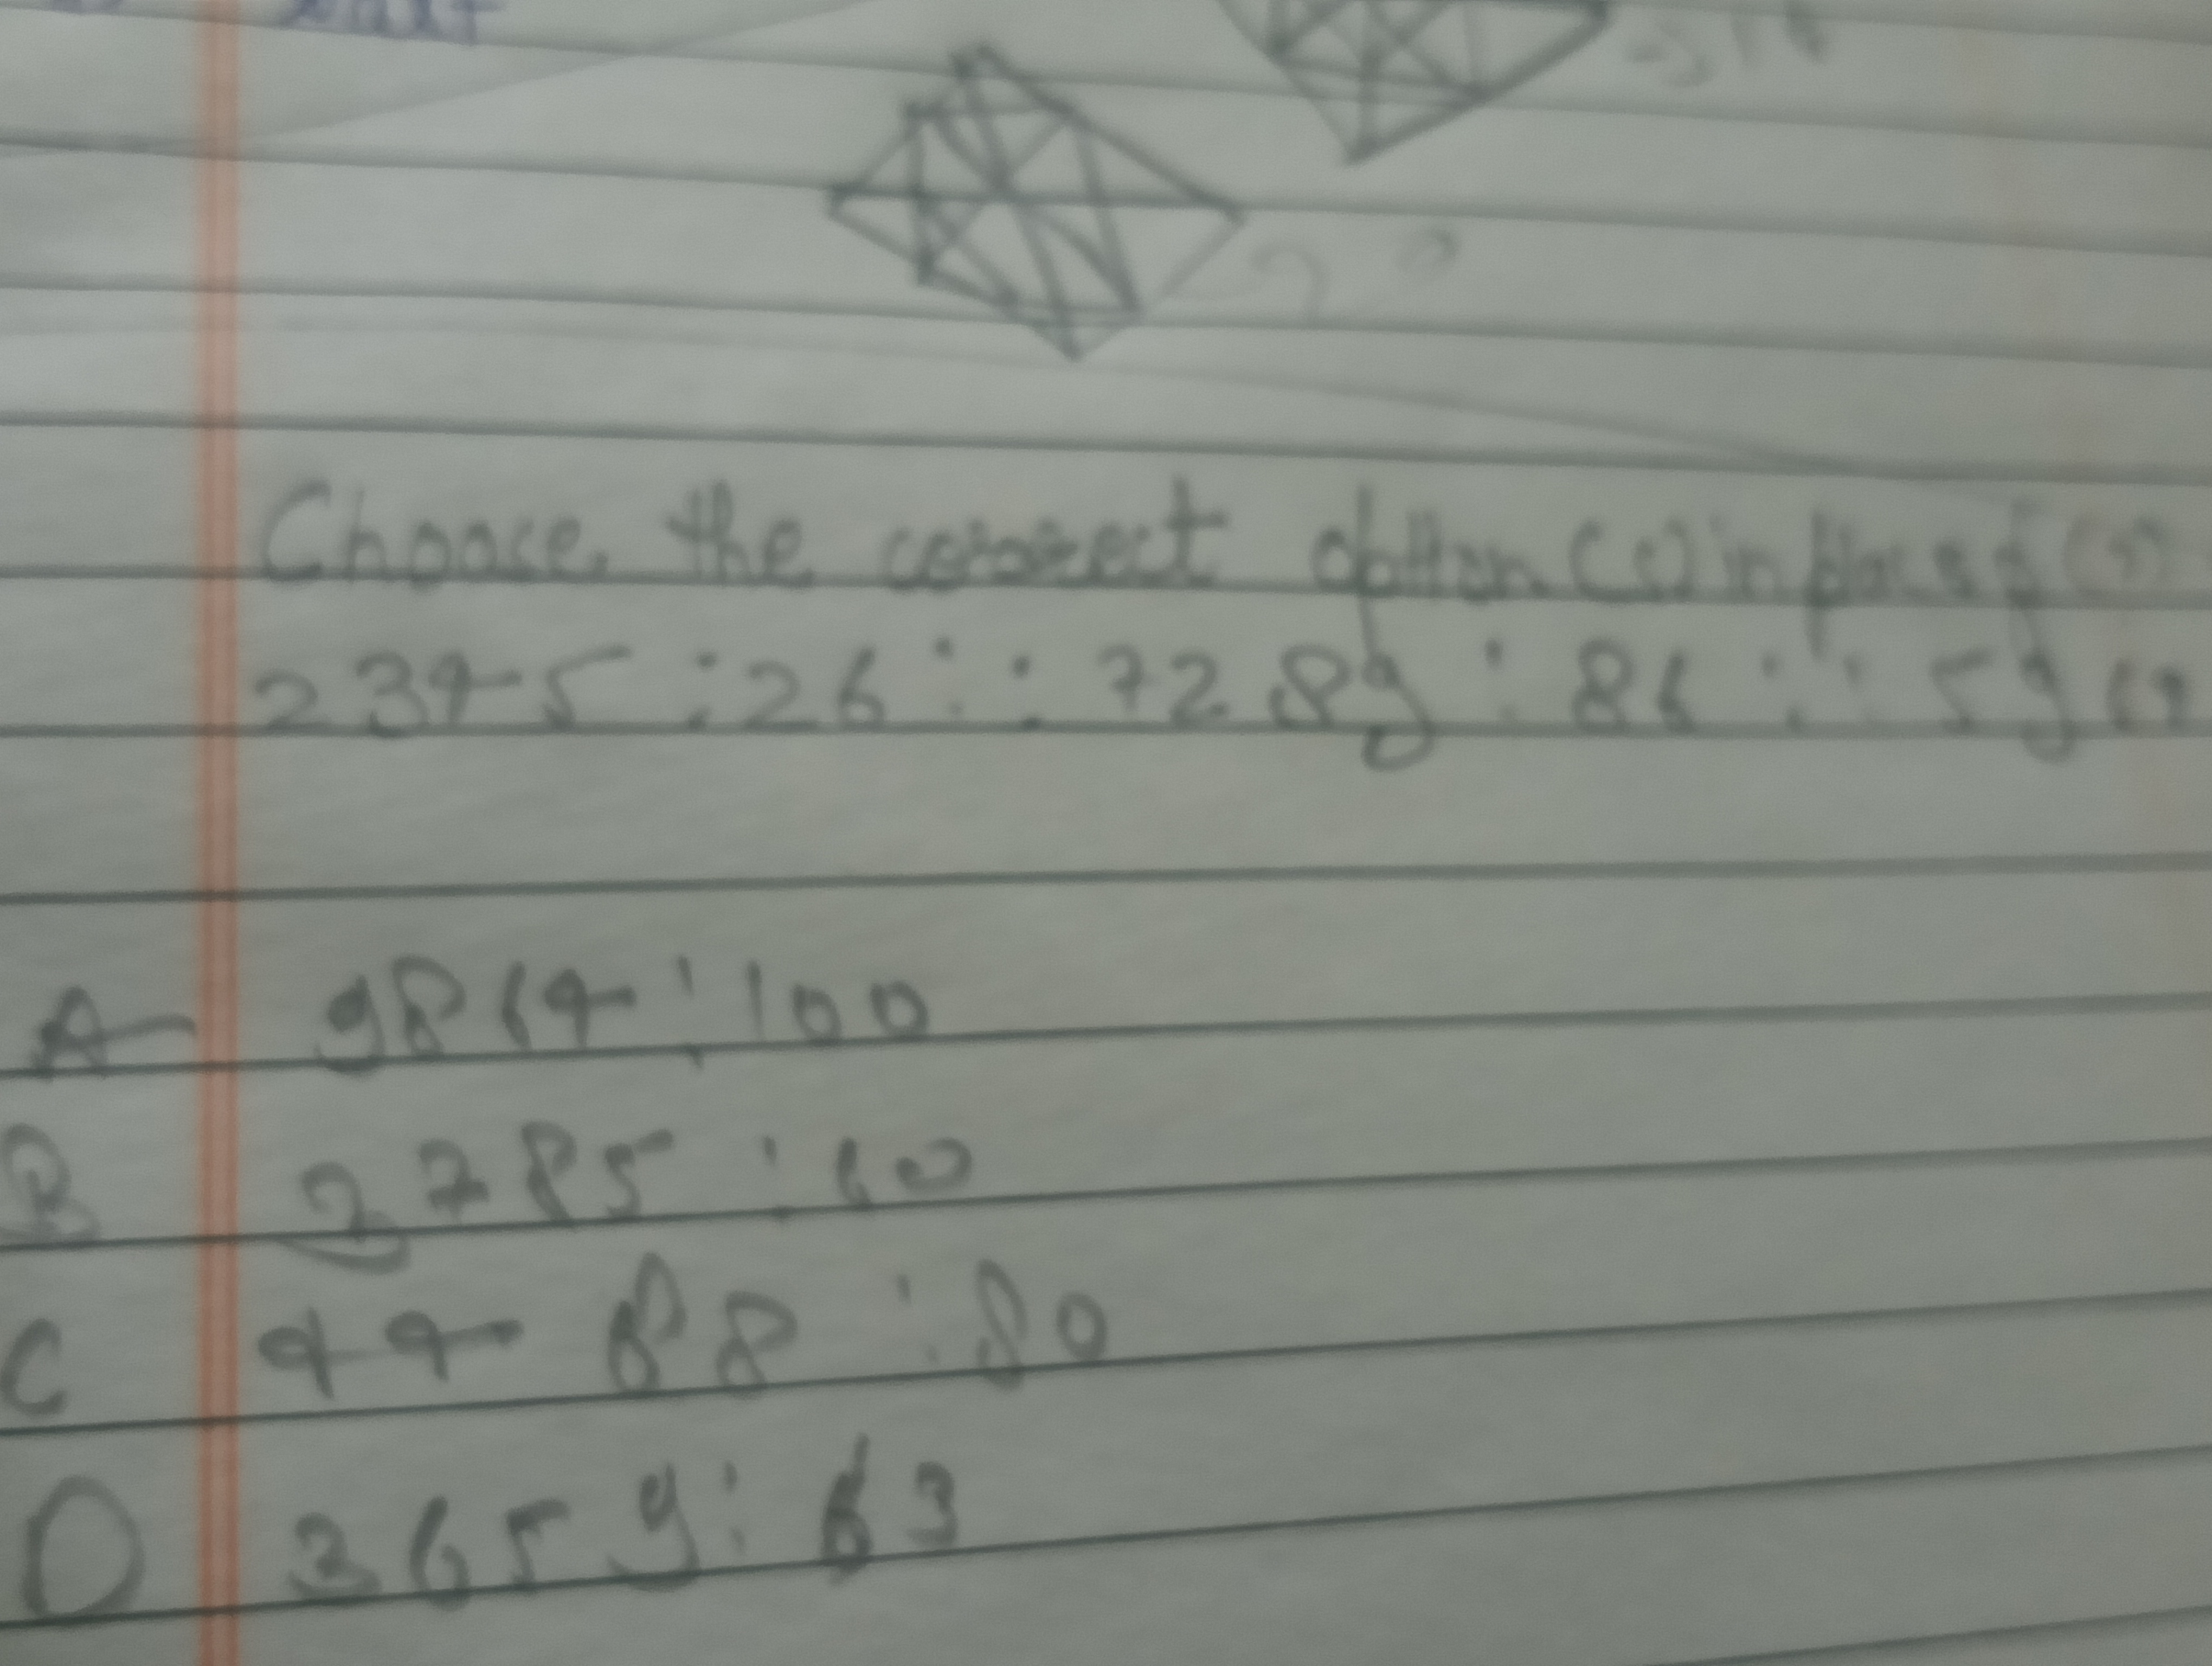 Choose the correct option(s) in place of (?)
2345 : 26 :: 7289 : 86 :: 59
A 9864 : 100
B 2785 : 60
C 4488 : 80
D 3659 : 63